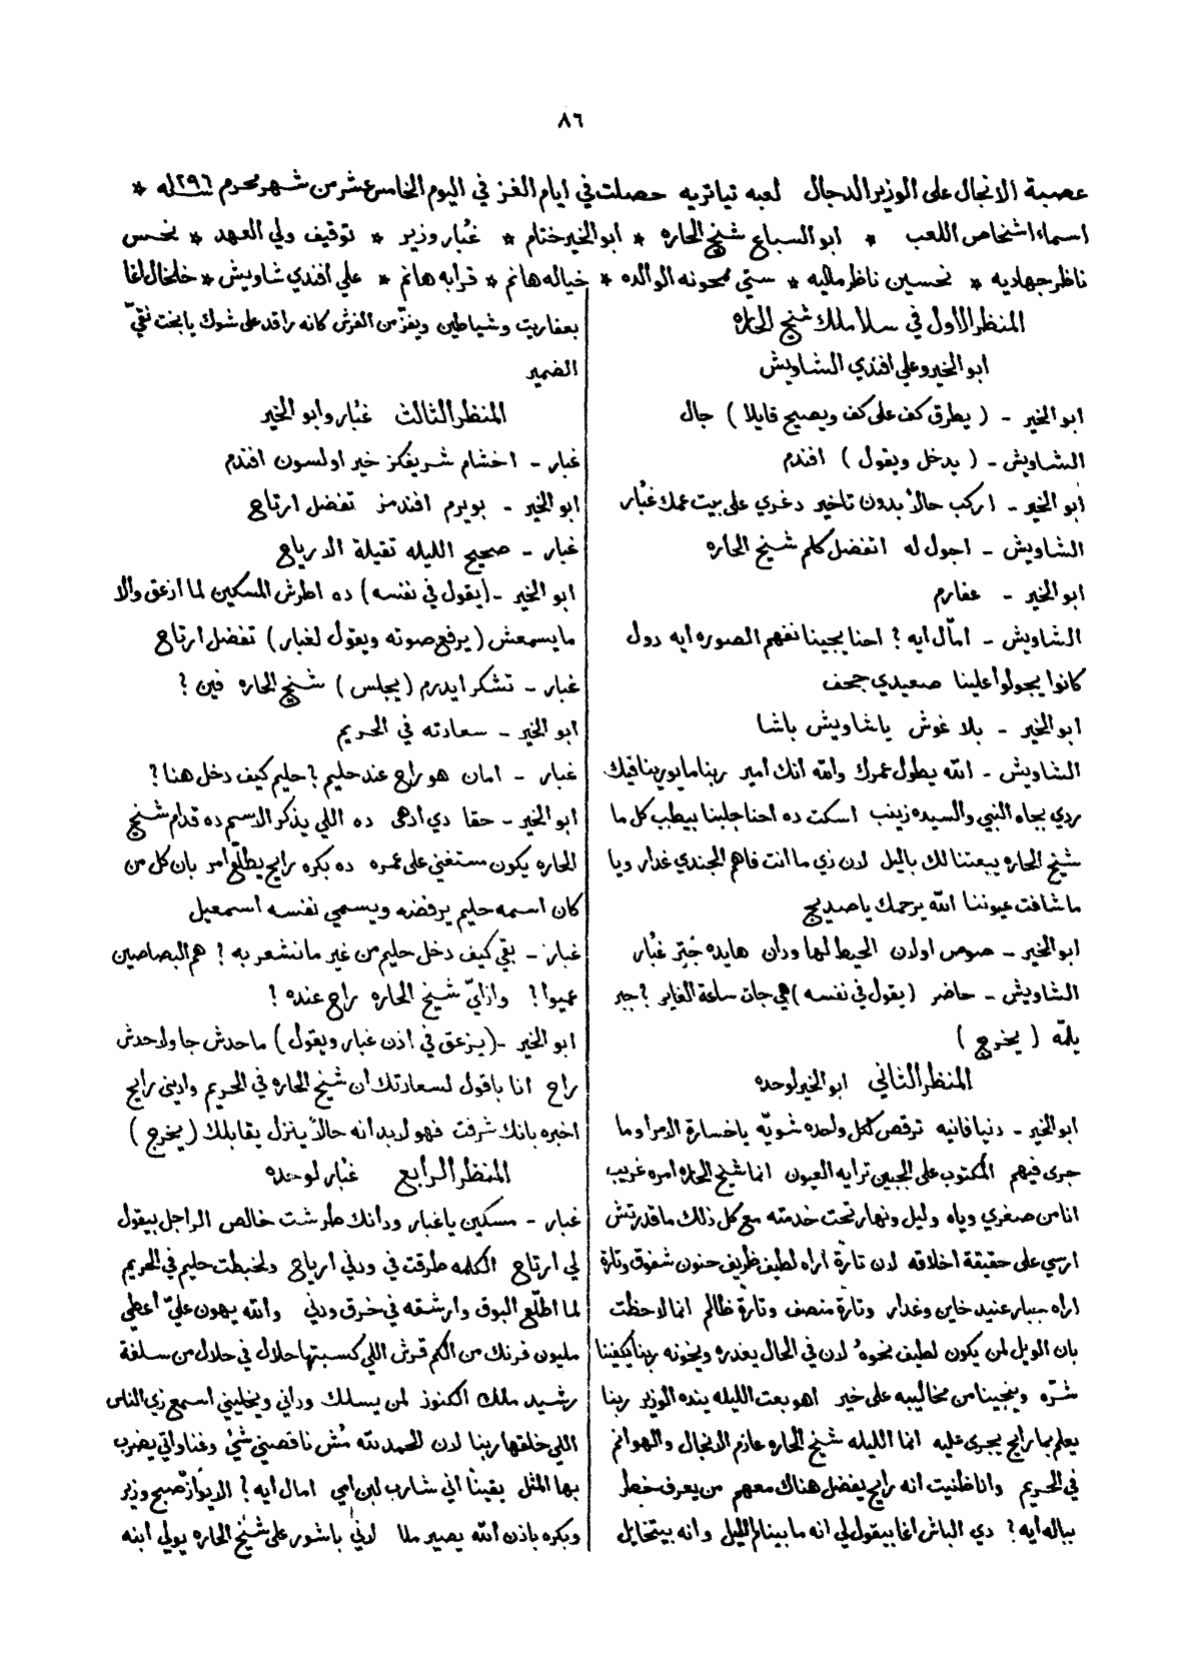 ٨٦
عصبة الانجال على الوزير الدجال لعبه تياتريه حصلت في ايام الغز في اليوم الخامس عشر من شهر محرم سنة ١٢٩٦ *
اسماء اشخاص اللعب * ابو السباع شيخ الحاره * ابو الخير ختام * غبار وزير * توقيف ولي العهد * نحس
ناظر جهاديه * نحسين ناظر ماليه * ستي ممحونه الوالده * خياله هانم * قرابه هانم * علي افندي شاويش * خلخال اغا
المنظر الاول في سلاملك شيخ الحاره
ابو الخير وعلي افندي الشاويش
ابو الخير - ( يطرق كف على كف ويصيح قايلا ) جال
الشاويش - ( يدخل ويقول ) افندم
ابو الخير - اركب حالاً بدون تاخير دغري على بيت عمك غبار
الشاويش - اجول له اتفضل كلم شيخ الحاره
ابو الخير - عفارم
الشاويش - امّال ايه ؟ احنا يجينا نفهم الصوره ايه دول
كانوا يجولوا علينا صعيدي جحف
ابو الخير - بلا غوش يا شاويش باشا
الشاويش - الله يطول عمرك والله انك امير ربنا ما يورينا فيك
ردي بجاه النبي والسيده زينب اسكت ده احنا جلبنا بيطب كل ما
شيخ الحاره يبعتنا لك بالليل لان زي ما انت فاهم الجندي غدار ويا
ما شافت عيوننا الله يرحمك يا صديج
ابو الخير - صوص اولان الحيط لها ودان هايده خبّر غبار
الشاويش - حاضر ( يقول في نفسه ) هي جات ساعة الغاير ؟ جبر
يلمّه ( يخرج )
المنظر الثاني ابو الخير لوحده
ابو الخير - دنيا فانيه ترقص لكل واحده شويّه يا خسارة الامرا وما
جرى فيهم المكتوب على الجبين ترايه العيون انما شيخ الحاره امره غريب
انا من صغري وياه وليل ونهار تحت خدمته مع كل ذلك ما قدرتش
ارسي على حقيقة اخلاقه لان تارة اراه لطيف ظريف حنون شفوق وتارة
اراه جبار عنيد خاين وغدار وتارة منصف وتارة ظالم انما لاحظت
بان الويل لمن يكون لطيف نحوه لان في الحال يغدره ويخونه ربنا يكفينا
شرّه وينجينا من مخاليبه على خير اهو بعت الليله ينده الوزير ربنا
يعلم بما رايح يجرى عليه انما الليله شيخ الحاره عازم الانجال والهوانم
في الحريم وانا ظنيت انه رايح يفضل هناك معهم من يعرف خطر
بباله ايه ؟ دي الباش اغا بيقول لي انه ما بينام الليل وانه بيتخايل
بعفاريت وشياطين ويفزّ من الفرش كانه راقد على شوك يا بخت نقيّ
الضمير
المنظر الثالث غبار وابو الخير
غبار - اخشام شريفكز خير اولسون افندم
ابو الخير - بويرم افندمز تفضل ارتاح
غبار - صحيح الليله تقيلة الارياح
ابو الخير - (يقول في نفسه) ده اطرش المسكين لما ازعق والا
ما يسمعش ( يرفع صوته ويقول لغبار ) تفضل ارتاح
غبار - تشكر ايدرم ( يجلس ) شيخ الحاره فين ؟
ابو الخير - سعادته في الحريم
غبار - امان هو راح عند حليم ؟ حليم كيف دخل هنا ؟
ابو الخير - حقا دي ادهى ده اللي يذكر الاسم ده قدام شيخ
الحاره يكون مستغني على عمره ده بكره رايح يطلّع امر بان كل من
كان اسمه حليم يرفضه ويسمي نفسه اسمعيل
غبار - بقى كيف دخل حليم من غير ما نشعر به ! هم البصاصين
عميوا ! وازايّ شيخ الحاره راح عنده !
ابو الخير - ( يزعق في اذن غبار ويقول ) ما حدش جا ولا حدش
راح انا باقول لسعادتك ان شيخ الحاره في الحريم واديني رايح
اخبره بانك شرفت فهو لا بد انه حالاً ينزل يقابلك ( يخرج )
المنظر الرابع غبار لوحده
غبار - مسكين يا غبار ودانك طرشت خالص الراجل بيقول
لي ارتاح الكلمه طرقت في ودني ارياح ولخبطت حليم في الحريم
لما اطلّع البوق وارشقه في خرق ودني والله يهون عليّ اعطي
مليون فرنك من الكم قرش اللي كسبتها حلال في حلال من سلفة
رشيد ملك الكنوز لمن يسلك وداني ويخليني اسمع زي الناس
اللي خلقها ربنا لان الحمد لله مُش ناقصني شئ وغناواتي يضرب
بها المثل يقيناً اني شارب لبن امي امال ايه ؟ الايواز صبح وزير
وبكره باذن الله يصير ملا لاني باشور على شيخ الحاره يولي ابنه